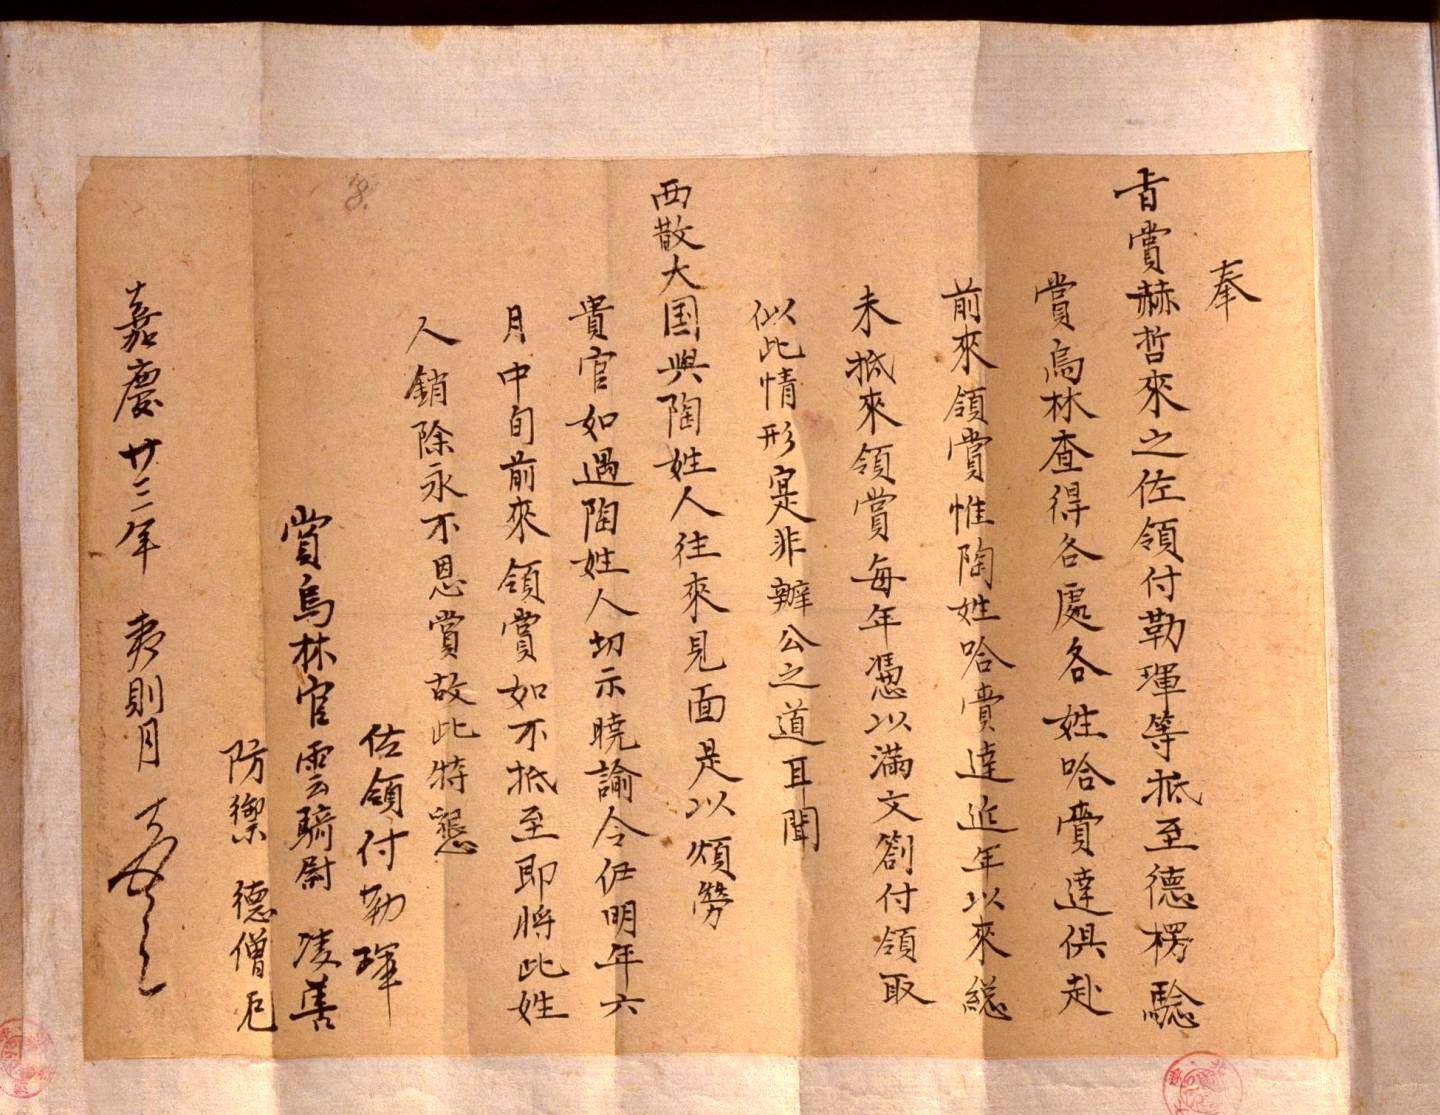 奉
旨賞赫哲來之佐領付勒琿等抵至德楞驗
賞烏林查得各處各姓哈賫達俱赴
前來領賞惟陶姓哈賫達近年以來總
未抵來領賞每年憑以滿文劄付領取
似此情形寔非辦公之道耳聞
西散大国與陶姓人往來見面是以煩勞
貴官如遇陶姓人切示曉諭令伊明年六
月中旬前來領賞如不抵至即將此姓
人銷除永不恩賞故此特懇
佐領付勒琿
賞烏林官雲騎尉 凌善
防禦 德僧厄
嘉慶廿三年 夷則月
8.